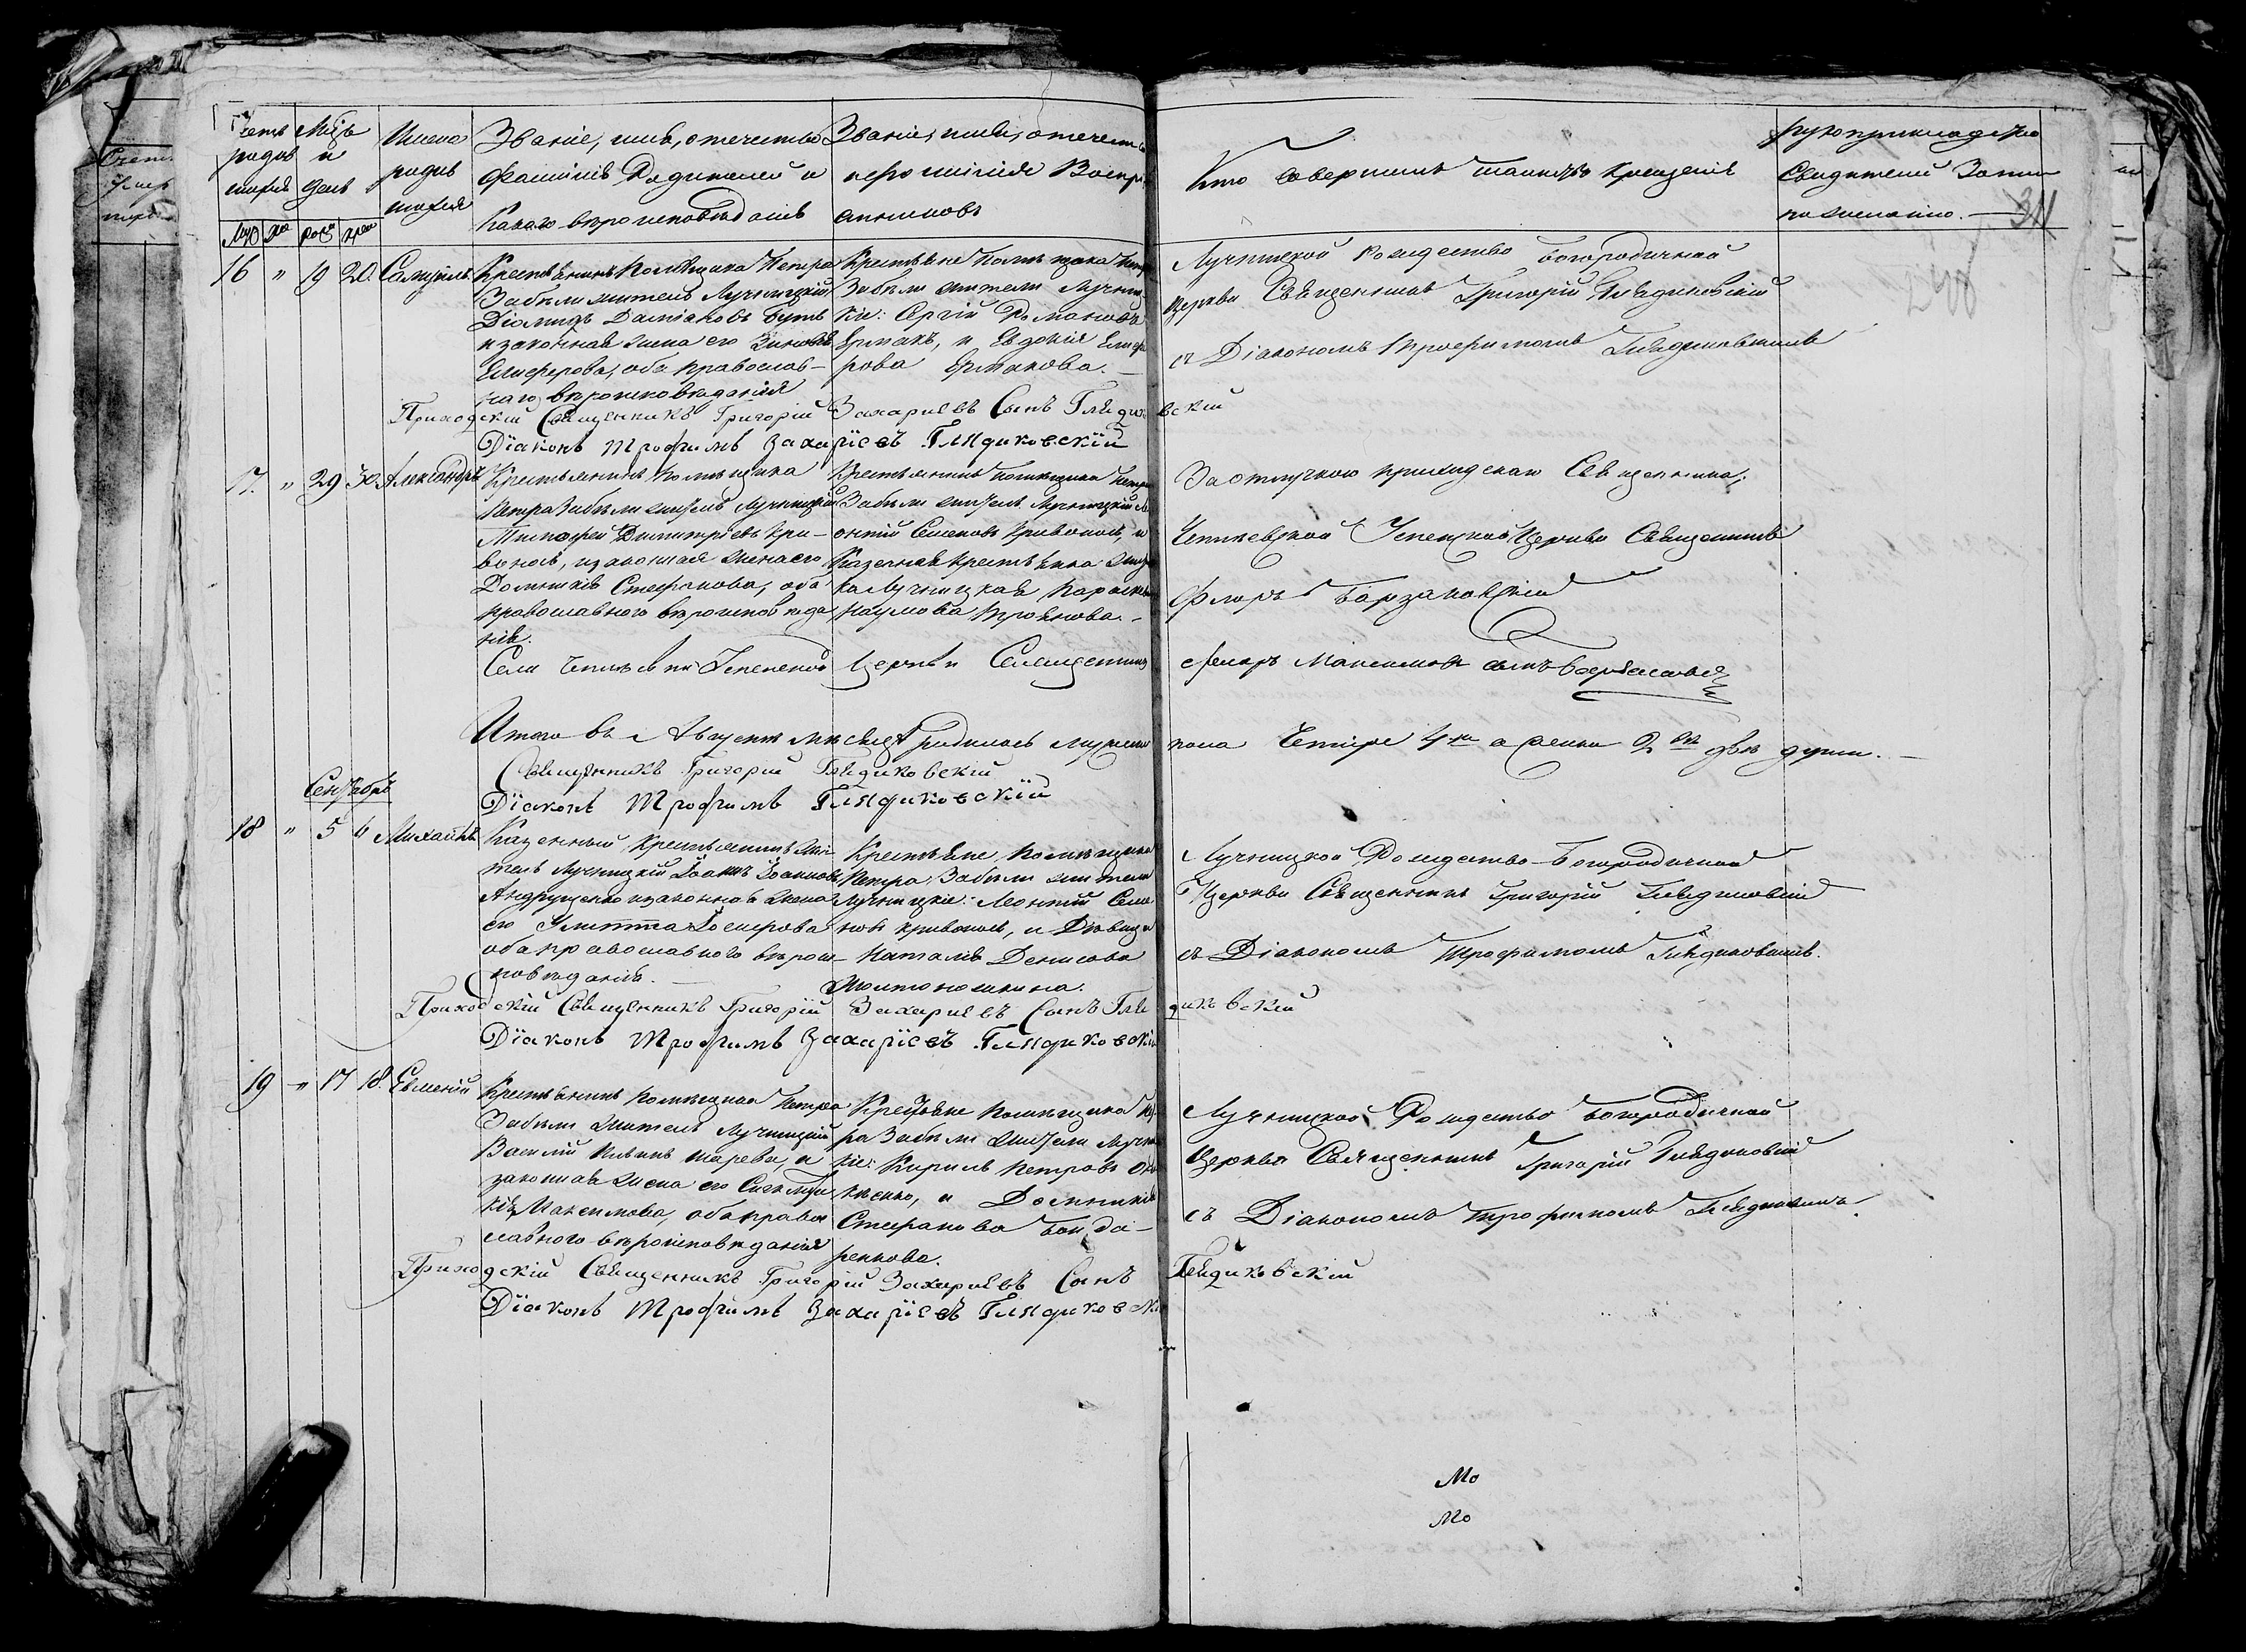 Счетъ родив шихся
Мцъ и день
Имена родив шихся
Званіе, имя, отечество
фамилія Родителей и
какаго вѣроисповѣданія
Званіе, имя, отечест
и фамилія Воспрі
емниковъ
Кто совершилъ таинство крещенія
рукоприкладство
Свидѣтелей Запи
по желанію.
Муж
Же
Рож
Кре
34
16 " 19 20. Самуилъ
Крестьянинъ Помѣщика Петра
Забѣли житель Лучницкій
Діомидъ Даміановъ
и законная жена его
Елиферова, оба православ-
наго вѣроисповѣданія
Крестьяне Помѣщика Петра
Забѣли жители Лучниц
кіе: Сергій Романовъ
Ермакъ, и Евдокія Елиф
рова Ермакова.
Лучницкой Рождество Богородичной
Церкви Священникъ Григорій Глядиковскій
съ Діакономъ Трофимомъ Глядиковскимъ
Приходскій Священникъ Григорій Захаріевъ Сынъ Глядиковскій
Діаконъ Трофимъ Захаріевъ Глядиковскій
17. " 29 30. Александръ
Крестьянинъ Помѣщика
Петра Забѣли житель Лучницкій
Тимофей Димитріевъ Кри-
воносъ, и законная жена его
Домникія Стефанова, оба
православнаго вѣроисповѣда
нія.
Крестьянинъ Помѣщика Петра
Забѣли житель Лучницкій Ле
онтій Семеновъ Кривоносъ, и
Казенная крестьянка жит
ка Лучницкая Параске
Наумова
За отлучкою приходскаго Священника,
Успенской Церкви Священникъ
Флоръ
Села Успенской Церкви Священникъ
Флоръ Максимовъ сынъ
Итого въ Августѣ мѣсяцѣ родилось мужеска
пола Четыре 4ре а женска 2 вѣ двѣ души.
Священникъ Григорій Глядиковскій
Діаконъ Трофимъ Глядиковскій
Сентябрь
18 " 5 6 Михаилъ
Казенный Крестьянинъ жи
тель Лучницкій Іоаннъ Іоанновъ
Андрущенко и законная жена
его Улитта
оба православнаго вѣроис-
повѣданія.
Крестьяне Помѣщика
Петра Забѣли жители
Лучницкіе: Леонтій Семе
новъ Кривоносъ, и Дѣвица
Наталія Денисова
Лучницкой Рождество-Богородичной
Церкви Священникъ Григорій Глядиковскій
съ Діакономъ Трофимомъ Глядиковскимъ.
Приходскій Священникъ Григорій Захаріевъ Сынъ Глядиковскій
Діаконъ Трофимъ Захаріевъ Глядиковскій
19 " 17 18. Евменій
Крестьянинъ Помѣщика Петра
Забѣли житель Лучницкій
Василій и
законная жена его
Максимова, оба право
славнаго вѣроисповѣданія
Крестьяне Помѣщика Пет
ра Забѣли жители Лучниц
кіе: Кирилъ Петровъ
и Домникія
Стефанова Бонда-
ренкова.
Лучницкой Рождество Богородичной
Церкви Священникъ Григорій Глядиковскій
съ Діакономъ Трофимомъ Глядиковскимъ.
Приходскій Священникъ Григорій Захаріевъ Сынъ Глядиковскій
Діаконъ Трофимъ Захаріевъ Глядиковскі
Мо
Мо